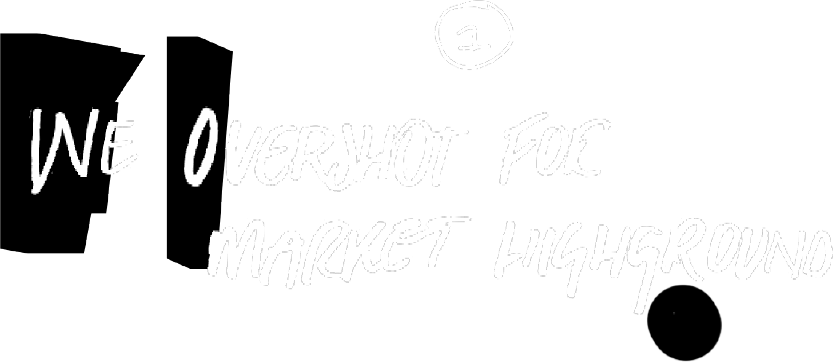 1
WE OVERSHOT FOR
MARKET HIGHGROUND